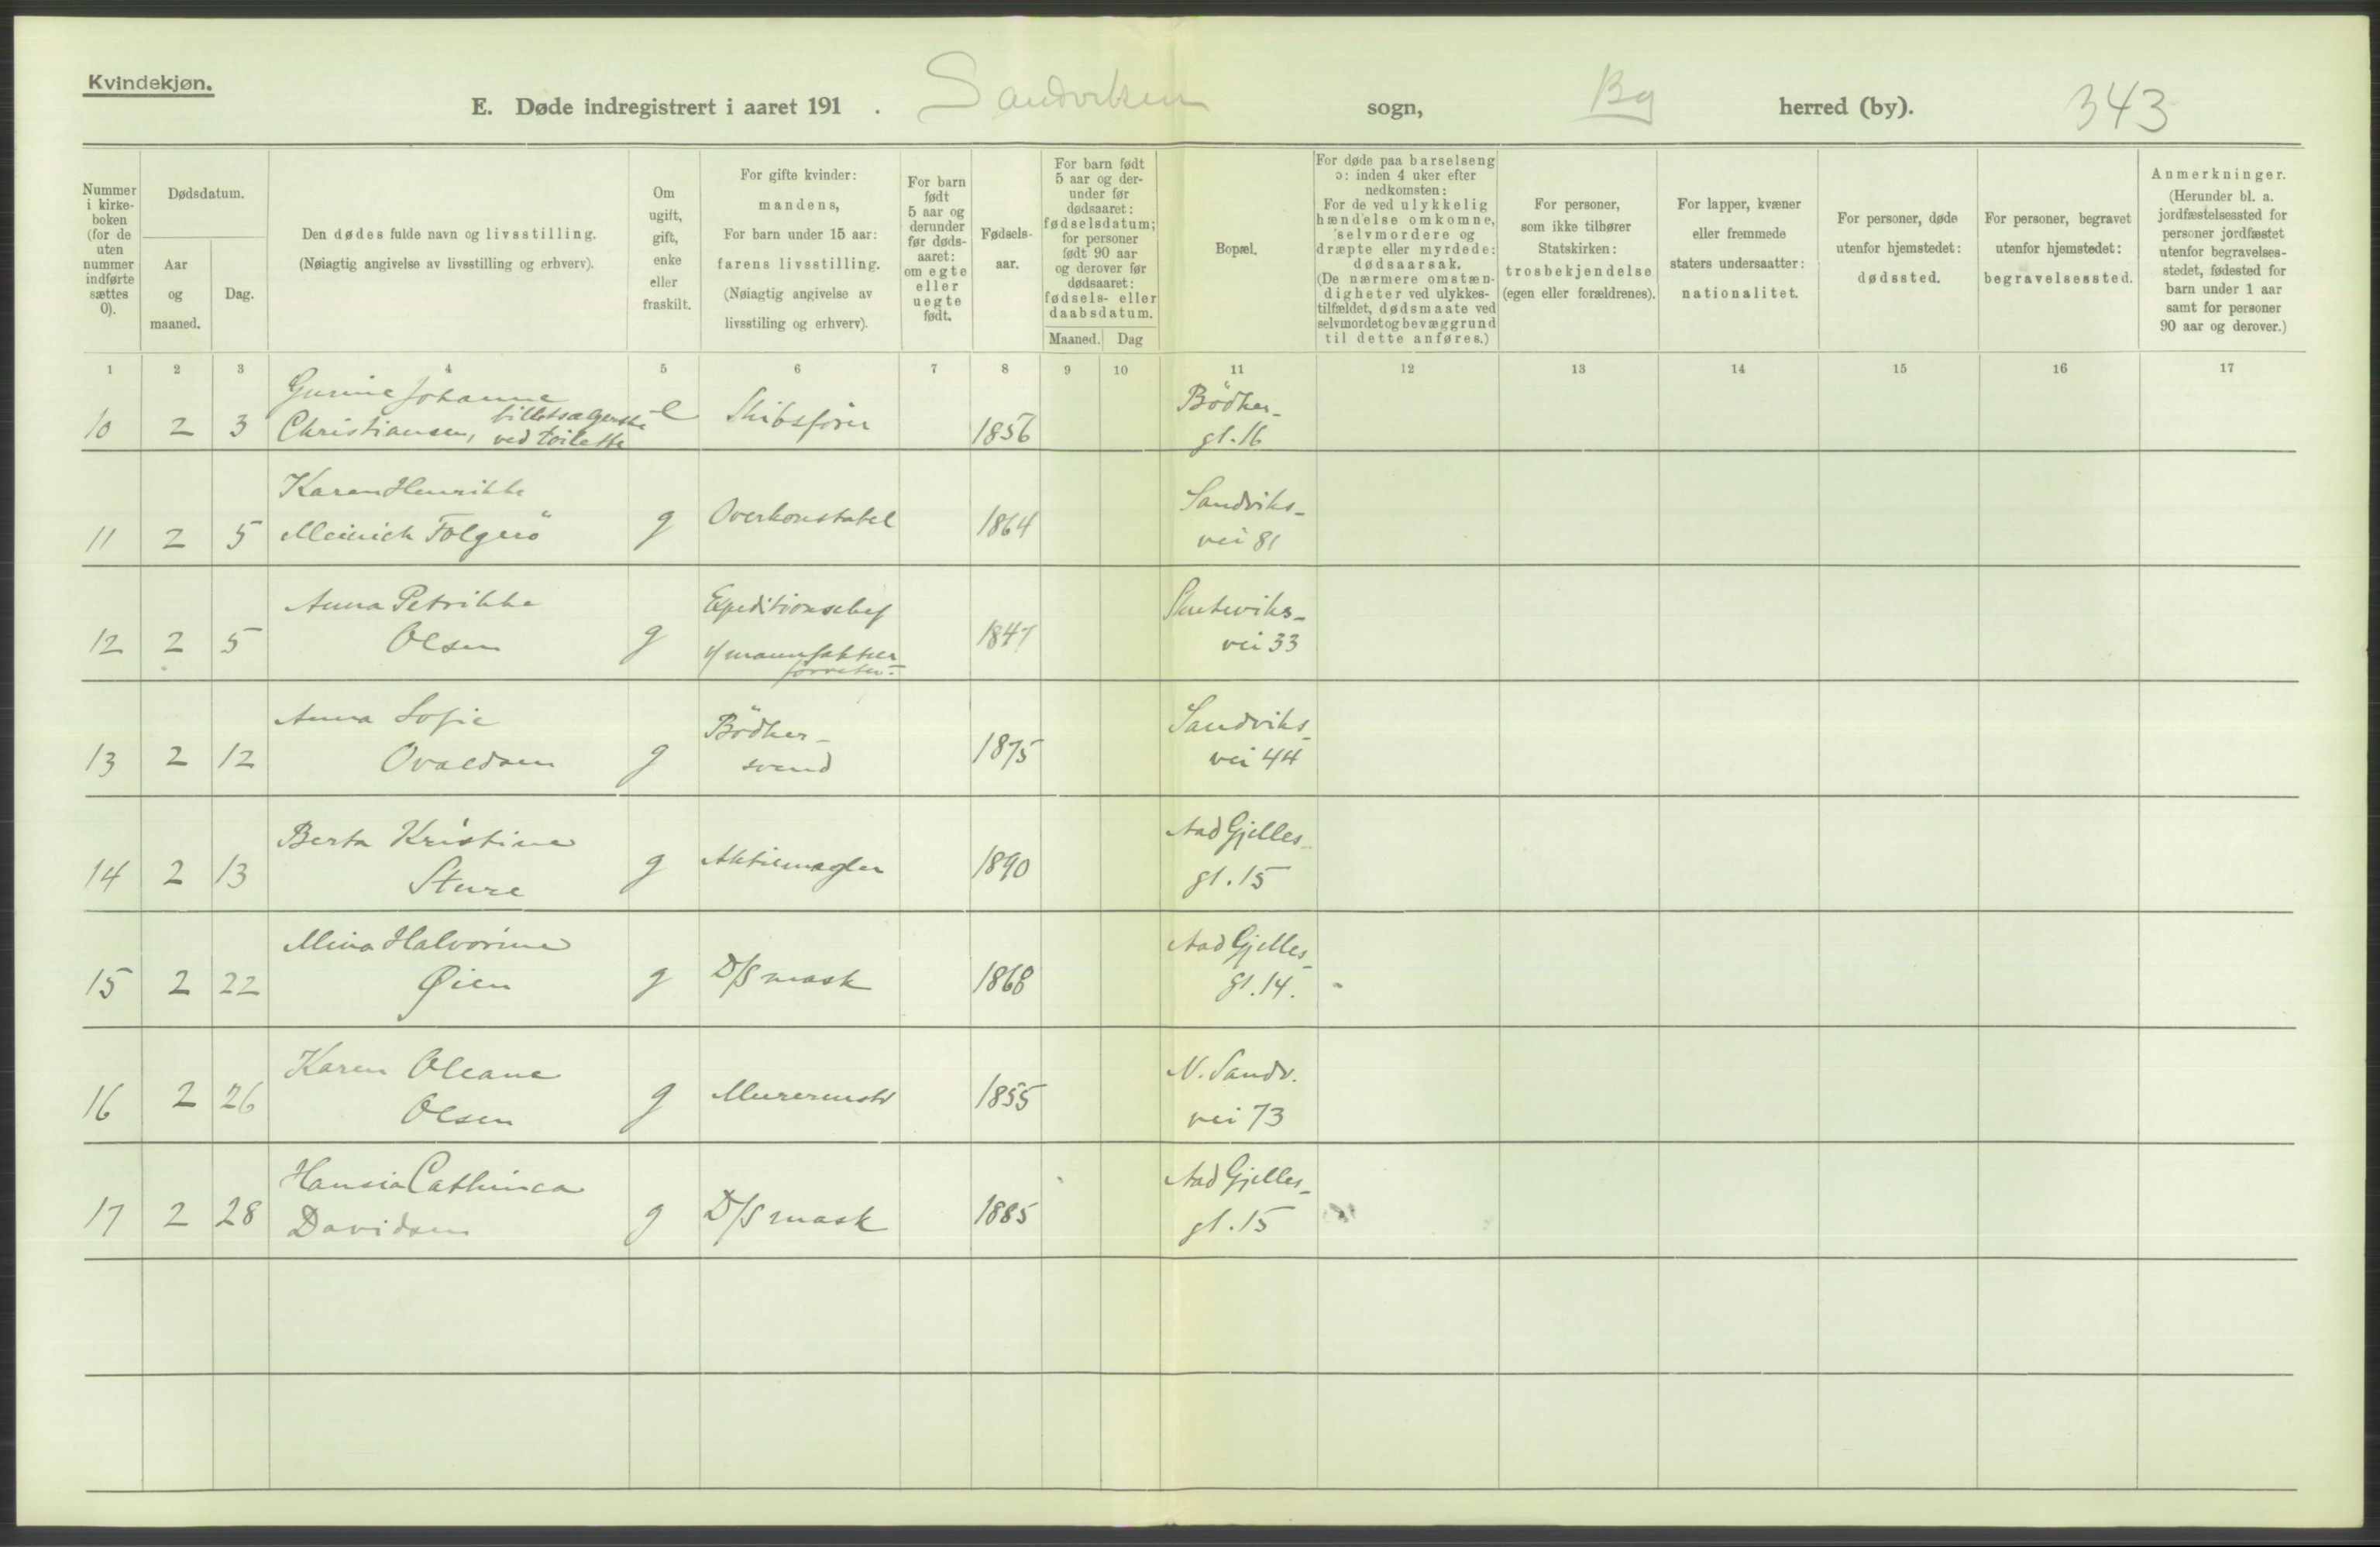 Kvindekjøn.
E. Døde indregistrert i aaret 191 . Sandviken sogn, Bg herred (by). 343
Nummer i kirke-boken (for de uten nummer indførte sættes 0).
Dødsdatum.
Aar og maaned.
Dag.
Den dødes fulde navn og livsstilling.
(Nøiagtig angivelse av livsstilling og erhverv).
Om ugift, gift, enke eller fraskilt.
For gifte kvinder: mandens,
For barn under 15 aar: farens livsstilling.
(Nøiagtig angivelse av livsstiling og erhverv).
For barn født 5 aar og derunder før døds-aaret: om egte eller uegte født.
Fødsels-aar.
For barn født 5 aar og der-under før dødsaaret: fødselsdatum; for personer født 90 aar og derover før dødsaaret: fødsels- eller daabsdatum.
Maaned. Dag
Bopæl.
For døde paa barselseng ɔ: inden 4 uker efter nedkomsten:
For de ved ulykkelig hændelse omkomne, selvmordere og dræpte eller myrdede: dødsaarsak.
(De nærmere omstæn-digheter ved ulykkes-tilfældet, dødsmaate ved selvmordet og bevæggrund til dette anføres.)
For personer, som ikke tilhører Statskirken: trosbekjendelse (egen eller forældrenes).
For lapper, kvæner eller fremmede staters undersaatter: nationalitet.
For personer, døde utenfor hjemstedet: dødssted.
For personer, begravet utenfor hjemstedet: begravelsessted.
Anmerkninger.
(Herunder bl. a. jordfæstelsessted for personer jordfæstet utenfor begravelses-stedet, fødested for barn under 1 aar samt for personer 90 aar og derover.)
1 2 3 4 5 6 7 8 9 10 11 12 13 14 15 16 17
Gurine Johanne Bödker-
10 2 3 Christiansen, billetsælgerske ved toilette e Skibsfører 1856 gt. 16
Karen Henrikke Sandviks-
11 2 5 Meinich Folgerö g Overkonstabel 1864 vei 81
Anna Petrikke Expeditionschef Skuteviks-
12 2 5 Olsen g i/ manufaktur 1847 vei 33
forretn.
Anna Sofie Bödker- Sandviks-
13 2 12 g svend 1875 vei 44
Berta Kristine Aad Gjelles-
14 2 13 Sture g Aktiemægler 1890 gt. 15
Mina Halvorine Aad Gjelles-
15 2 22 Øien g D/S mask 1868 gt. 14.
Karen Oleane N. Sandv.
16 2 26 Olsen g Murermstr 1855 vei 73
Hansia Cathinca Aad Gjelles-
17 2 28 Davidsen g D/S mask 1885 gt. 15